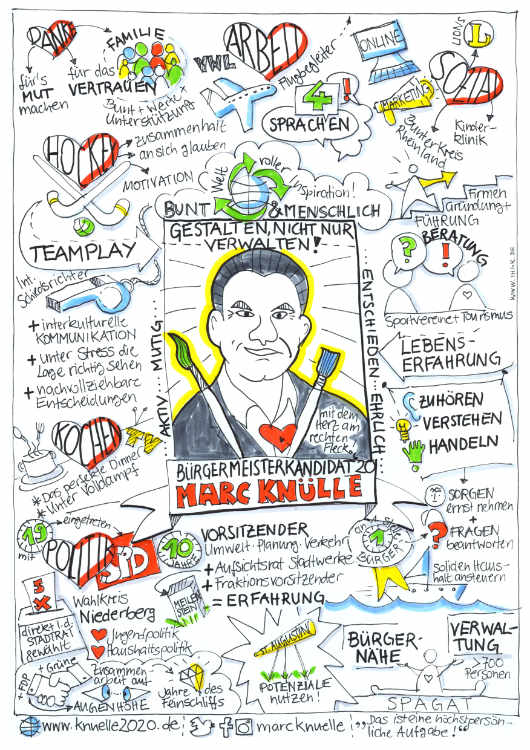 DANKE
für's
MUT
machen
FAMILIE
für das
VERTRAUEN
Bunt + Werte +
Unterstützung
ARBEIT
YWL
Flugbegleiter
4
!
SPRACHEN
ONLINE
MARKETING
LIONS
L
SOZIAL
Bunter Kreis
Rheinland
Kinder-
klinik
HOCKEY
zusammenhalt
an sich glauben
MOTIVATION
TEAMPLAY
Weltrollerinspiration!
BUNT & MENSCHLICH
Firmen
gründung +
FÜHRUNG
BERATUNG
?
!
Sportvereine + Tourismus
WWW.1THINK.DE
Int.
Schiedsrichter
+ interkulturelle
KOMMUNIKATION
+ unter Stress die
Lage richtig sehen
+ nachvollziehbare
Entscheidungen
GESTALTEN, NICHT NUR
VERWALTEN!
AKTIV ... MUTIG ...
... ENTSCHIEDEN ... EHRLICH
mit dem
Herz am
rechten
Fleck
BÜRGERMEISTERKANDIDAT 20
MARC KNÜLLE
LEBENS-
ERFAHRUNG
ZUHÖREN
VERSTEHEN
HANDELN
KOCHEN
TV
* Das perfekte Dinner
* Unter Volldampf
SORGEN
ernst nehmen
+
?
FRAGEN
beantworten
soliden Haus-
halt ansteuern
mit
19
eingetreten
POLITIK
SPD
10
JAHRE
VORSITZENDER
Umwelt · Planung · Verkehr
+ Aufsichtsrat Stadtwerke
+ Fraktionsvorsitzender
= ERFAHRUNG
MEILEN
STEIN
1
BÜRGER
5
X
direkt i.d.
STADTRAT
gewählt
Wahlkreis
Niederberg
Jugendpolitik
Haushaltspolitik
+ FDP
+ Grüne
Zusammen
arbeit auf
AUGENHÖHE
Jahre des
Feinschliffs
ST. AUGUSTIN
POTENZIALE
nutzen!
BÜRGER-
NÄHE
VERWAL-
TUNG
> 700
Personen
SPAGAT
www.knuelle2020.de
f
marcknuelle
"Das ist eine höchstpersön-
liche Aufgabe!"